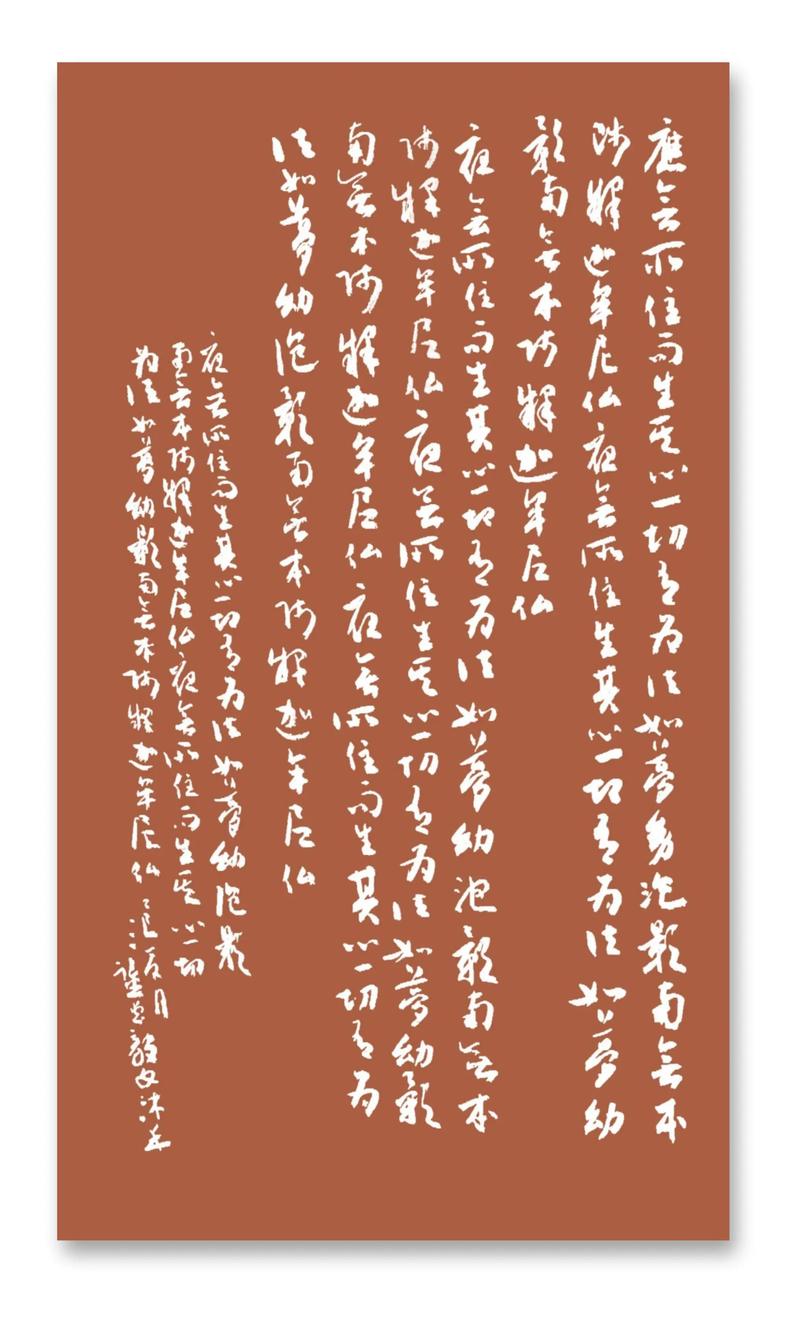 應無所住而生其心一切有为法如夢幻泡影南無本
師釋迦牟尼仏应無所住生其心一切有为法如夢幻
影南無本師釋迦牟尼仏
应無所住而生其心一切有为法如夢幻泡影南無本
師釋迦牟尼仏应無所住生其心一切有为法如夢幻影
南無本師釋迦牟尼仏应無所住而生其心一切有为
法如夢幻泡影南無本師釋迦牟尼仏
应無所住而生其心一切有为法如夢幻泡影
南無本師釋迦牟尼仏应無所住而生其心一切
为法如夢幻影南無本師釋迦牟尼仏